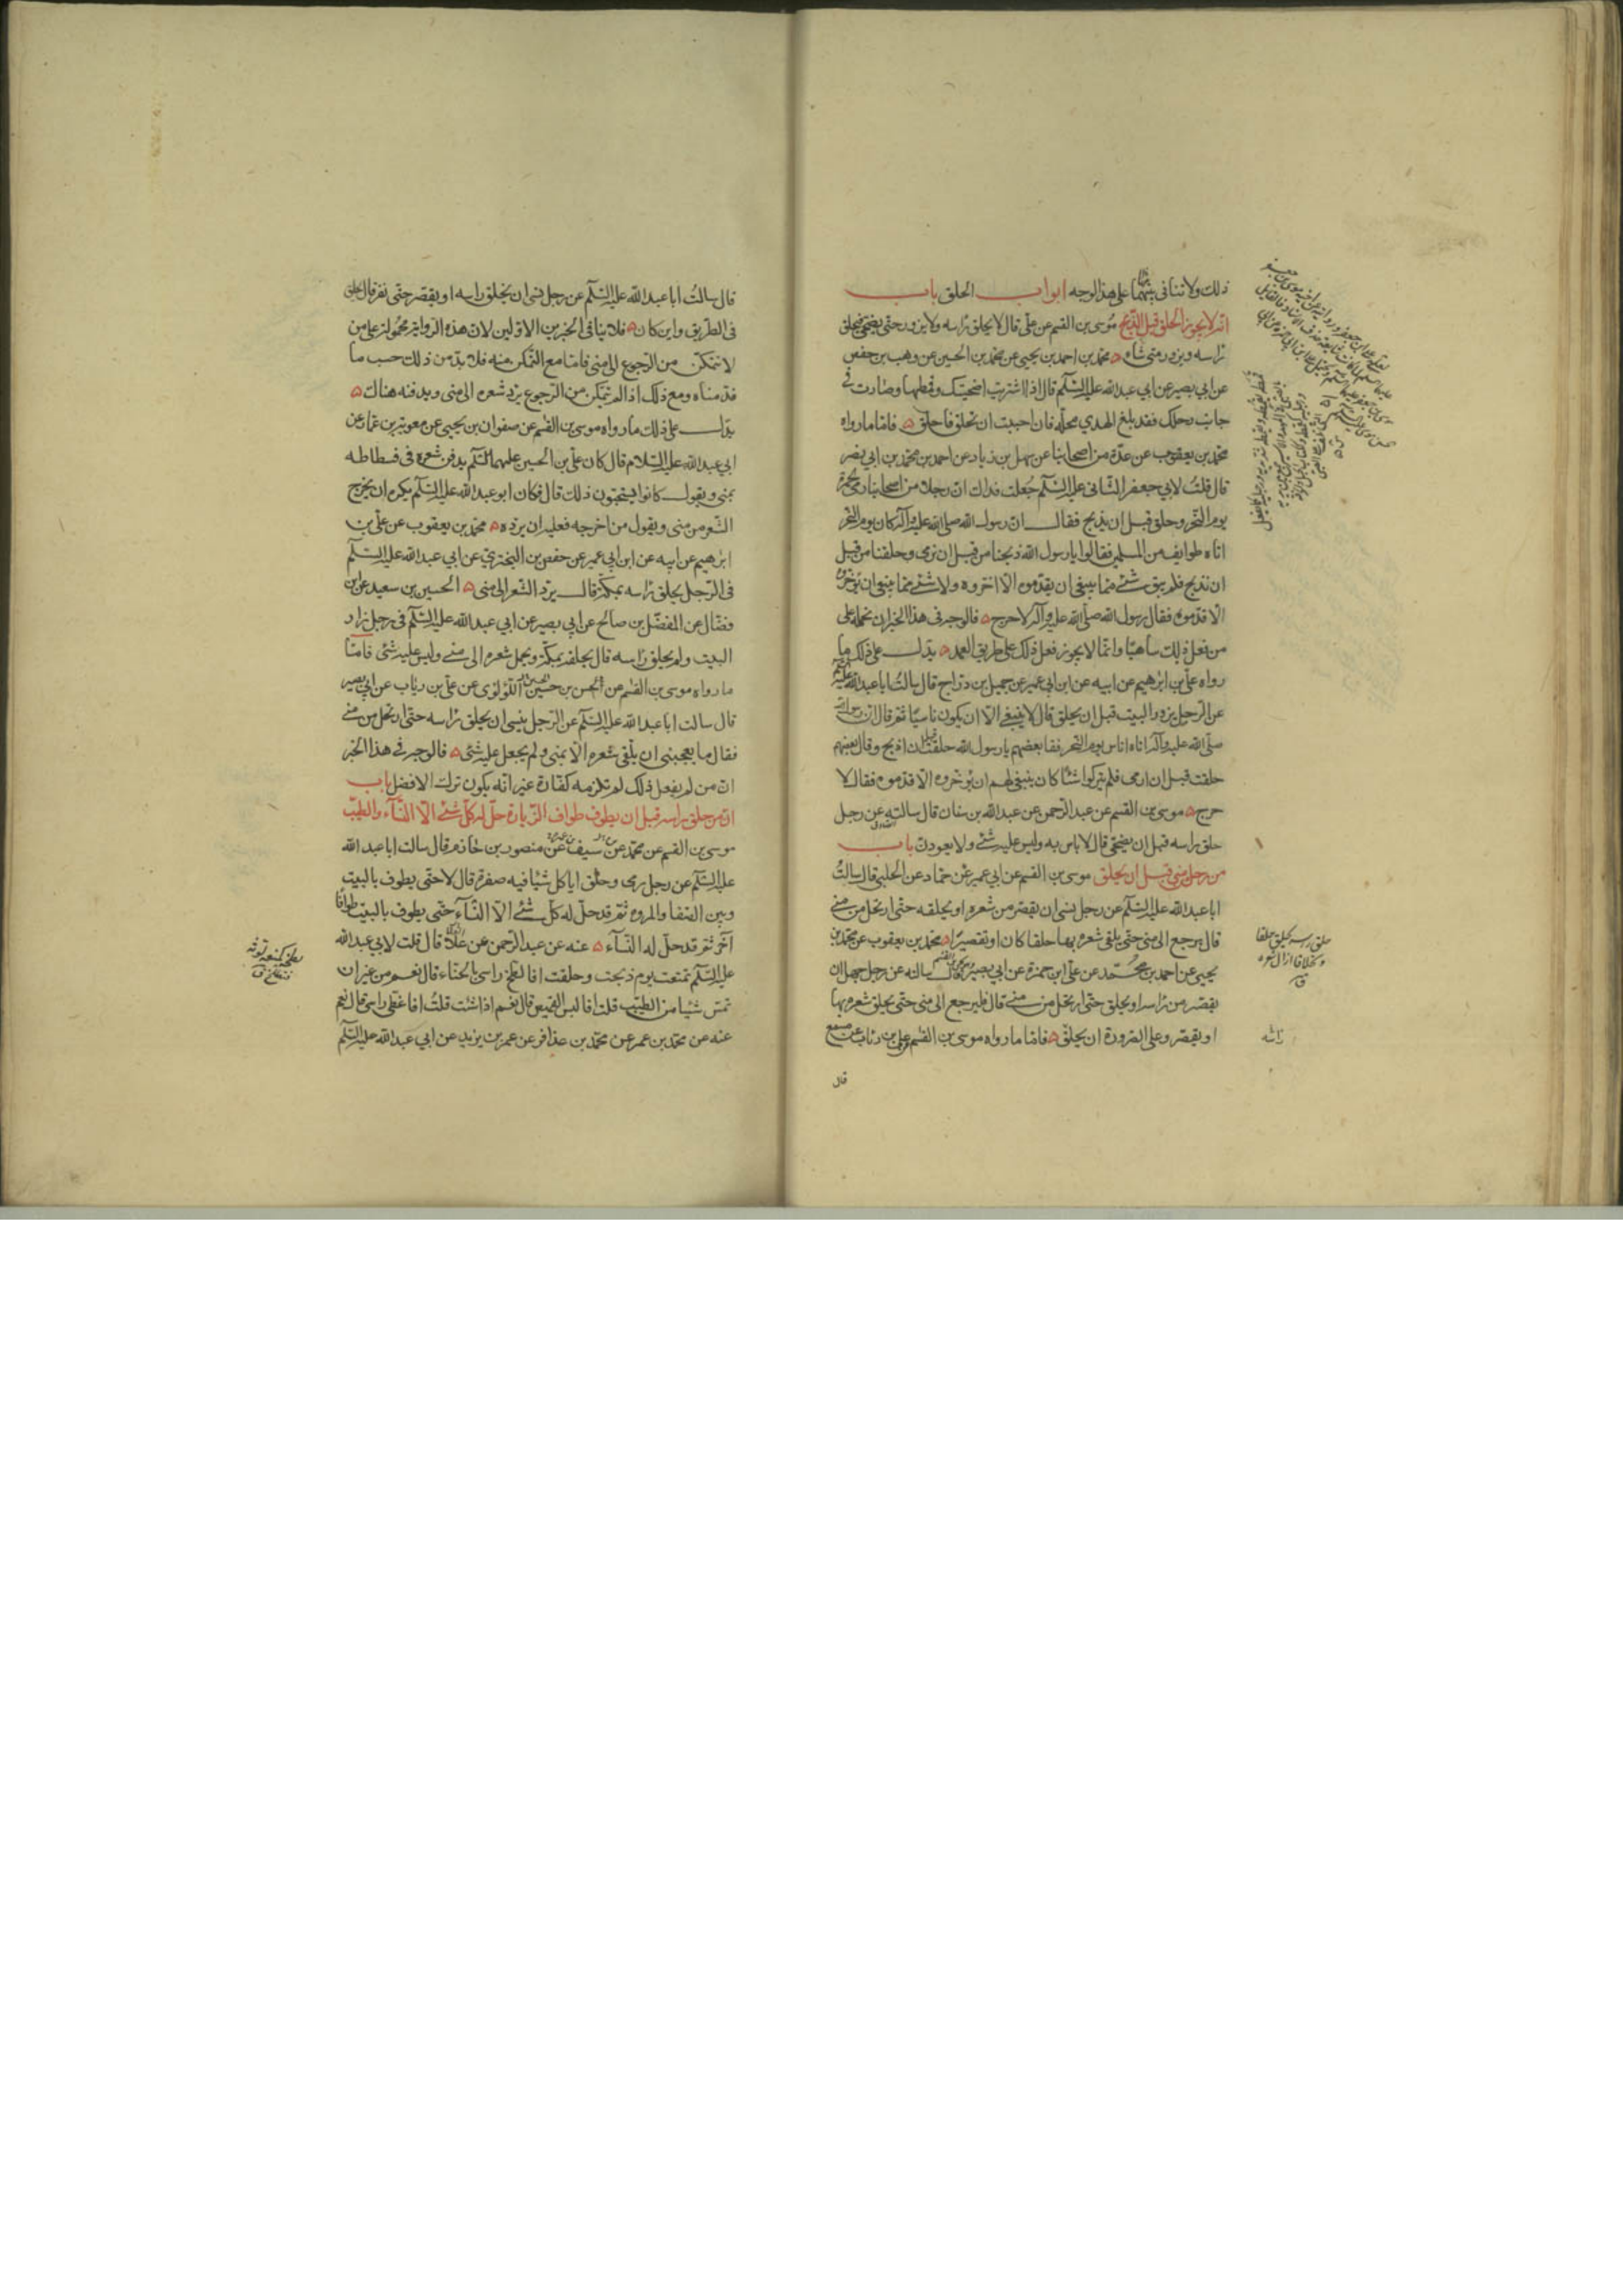 ذلك ولا تنافى بينهما على هذا الوجه ابواب الحلق باب
انه لا يجوز الحلق قبل الذبح موسى بن القسم عن على قال لا يحلق راسه ولا يزور حتى يضحى فيحلق
راسه ويزور متى شاء محمد بن احمد بن يحيى عن محمد بن الحسين عن وهب بن حفص
عن ابي بصير عن ابي عبدالله عليه السلم قال اذا اشتريت اضحيتك وقمطها وصارت فى
جانب رحلك فقد بلغ الهدي محله فان احببت ان تحلق فاحلق فاما ما رواه
محمد بن يعقوب عن عدة من اصحابنا عن سهل بن زياد عن احمد بن محمد بن ابي نصر
قال قلت لابي جعفر الثانى عليه السلم جعلت فداك ان رجلا من اصحابنا رمى الجمرة
يوم النحر وحلق قبل ان يذبح فقال ان رسول الله صلى الله عليه وآله كان يوم النحر
اتاه طوايف من المسلمين فقالوا يا رسول الله ذبحنا من قبل ان نرمى وحلقنا من قبل
ان نذبح فلم يبق شئ مما ينبغى ان يقدموه الا اخروه ولا شئ مما ينبغى ان يؤخروه
الا قدموه فقال رسول الله صلى الله عليه وآله لا حرج فالوجه فى هذا الخبر ان نحمله على
من فعل ذلك ساهيا وانما لا يجوز فعل ذلك على طريق العمد يدل على ذلك ما
رواه على بن ابرهيم عن ابيه عن ابن ابى عمير عن جميل بن دراج قال سالت ابا عبدالله عليه السلم
عن الرجل يزور البيت قبل ان يحلق قال لا ينبغى الا ان يكون ناسيا ثم قال ان رسول الله
صلى الله عليه وآله اتاه اناس يوم النحر فقا بعضهم يا رسول الله حلقت قبل ان اذبح وقال بعضهم
حلقت قبل ان ارمى فلم يتركوا شئا كان ينبغى لهم ان يؤخروه الا قدموه فقال لا
حرج موسى بن القسم عن عبد الرحمن عن عبدالله بن سنان قال سالته عن رجل
حلق راسه قبل ان يضحى قال لا باس به وليس عليه شئ ولا يعودن باب
من رحل من منى قبل ان يحلق موسى بن القسم عن ابي عمير عن حماد عن الحلبى قال سالت
ابا عبدالله عليه السلم عن رجل نسى ان يقصر من شعره او يحلقه حتى ارتحل من منى
قال يرجع الى منى حتى يلقى شعره بها حلقا كان او تقصيرا محمد بن يعقوب عن محمد بن
يحيى عن احمد بن محمد عن على ابن حمزة عن ابي بصير قال سالته عن رجل جهل ان
يقصر من راسه او يحلق حتى ارتحل من منى قال فليرجع الى منى حتى يحلق شعره بها
او يقصر وعلى الضرورة ان يحلق فاما ما رواه موسى بن القسم عن على بن رئاب عن مسمع
قال
قال سالت ابا عبد الله عليه السلم عن رجل نسى ان يحلق راسه او يقصر حتى نفر قال يحلق
فى الطريق واين كان فلا ينافى الخبرين الاولين لان هذه الرواية محمولة على من
لا يتمكن من الرجوع الى منى فاما مع التمكن منه فلا بد من ذلك حسب ما
قدمناه ومع ذلك اذا لم يتمكن من الرجوع يرد شعره الى منى ويدفنه هناك
يدل على ذلك ما رواه موسى بن القسم عن صفوان بن يحيى عن معوية بن عمار عن
ابي عبد الله عليه السلام قال كان على بن الحسين عليهما السلم يدفن شعره فى فسطاطه
بمنى ويقول كانوا يستحبون ذلك قال فكان ابو عبد الله عليه السلم يكره ان يخرج
الشعر من منى ويقول من اخرجه فعليه ان يرده محمد بن يعقوب عن على بن
ابرهيم عن ابيه عن ابن ابى عمير عن حفص بن البخترى عن ابي عبد الله عليه السلم
فى الرجل يحلق راسه بمكة قال يرد الشعر الى منى الحسين بن سعيد عن ابن
فضال عن المفضل بن صالح عن ابى بصير عن ابي عبد الله عليه السلم فى رجل زار
البيت ولم يحلق راسه قال يحلقه بمكة ويحمل شعره الى منى وليس عليه شئ فاما
ما رواه موسى بن القسم عن الحسن بن حسين اللؤلؤى عن على بن رياب عن ابى بصير
قال سالت ابا عبد الله عليه السلم عن الرجل ينسى ان يحلق راسه حتى ارتحل من منى
فقال ما يعجبنى ان يلقى شعره الا بمنى ولم يجعل عليه شئ فالوجه فى هذا الخبر
ان من لم يفعل ذلك لم تلزمه كفارة غير انه يكون ترك الافضل باب
ان من حلق راسه قبل ان يطوف طواف الزيارة حل له كل شئ الا النسآء والطيب
موسى بن القسم عن محمد عن سيف عن منصور بن حازم قال سالت ابا عبد الله
عليه السلم عن رجل رمى وحلق اياكل شيئا فيه صفرة قال لا حتى يطوف بالبيت
وبين الصفا والمروه ثم قد حل له كل شئ الا النسآء حتى يطوف بالبيت طوافا
آخر ثم قد حل له النسآء عنه عن عبد الرحمن عن علا قال قلت لابي عبد الله
عليه السلم تمتعت يوم ذبحت وحلقت افالطخ راسى بالحناء قال نعم من غير ان
تمس شيئا من الطيب قلت افالبس القميص قال نعم اذا شئت قلت افاغطى راسى قال نعم
عنه عن محمد بن عمر عن محمد بن عذافر عن عمر بن يزيد عن ابي عبد الله عليه السلم